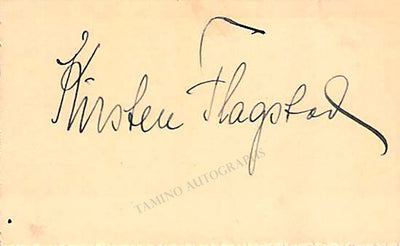 Kirsten Flagstad
TAMINO AUTOGRAPHS